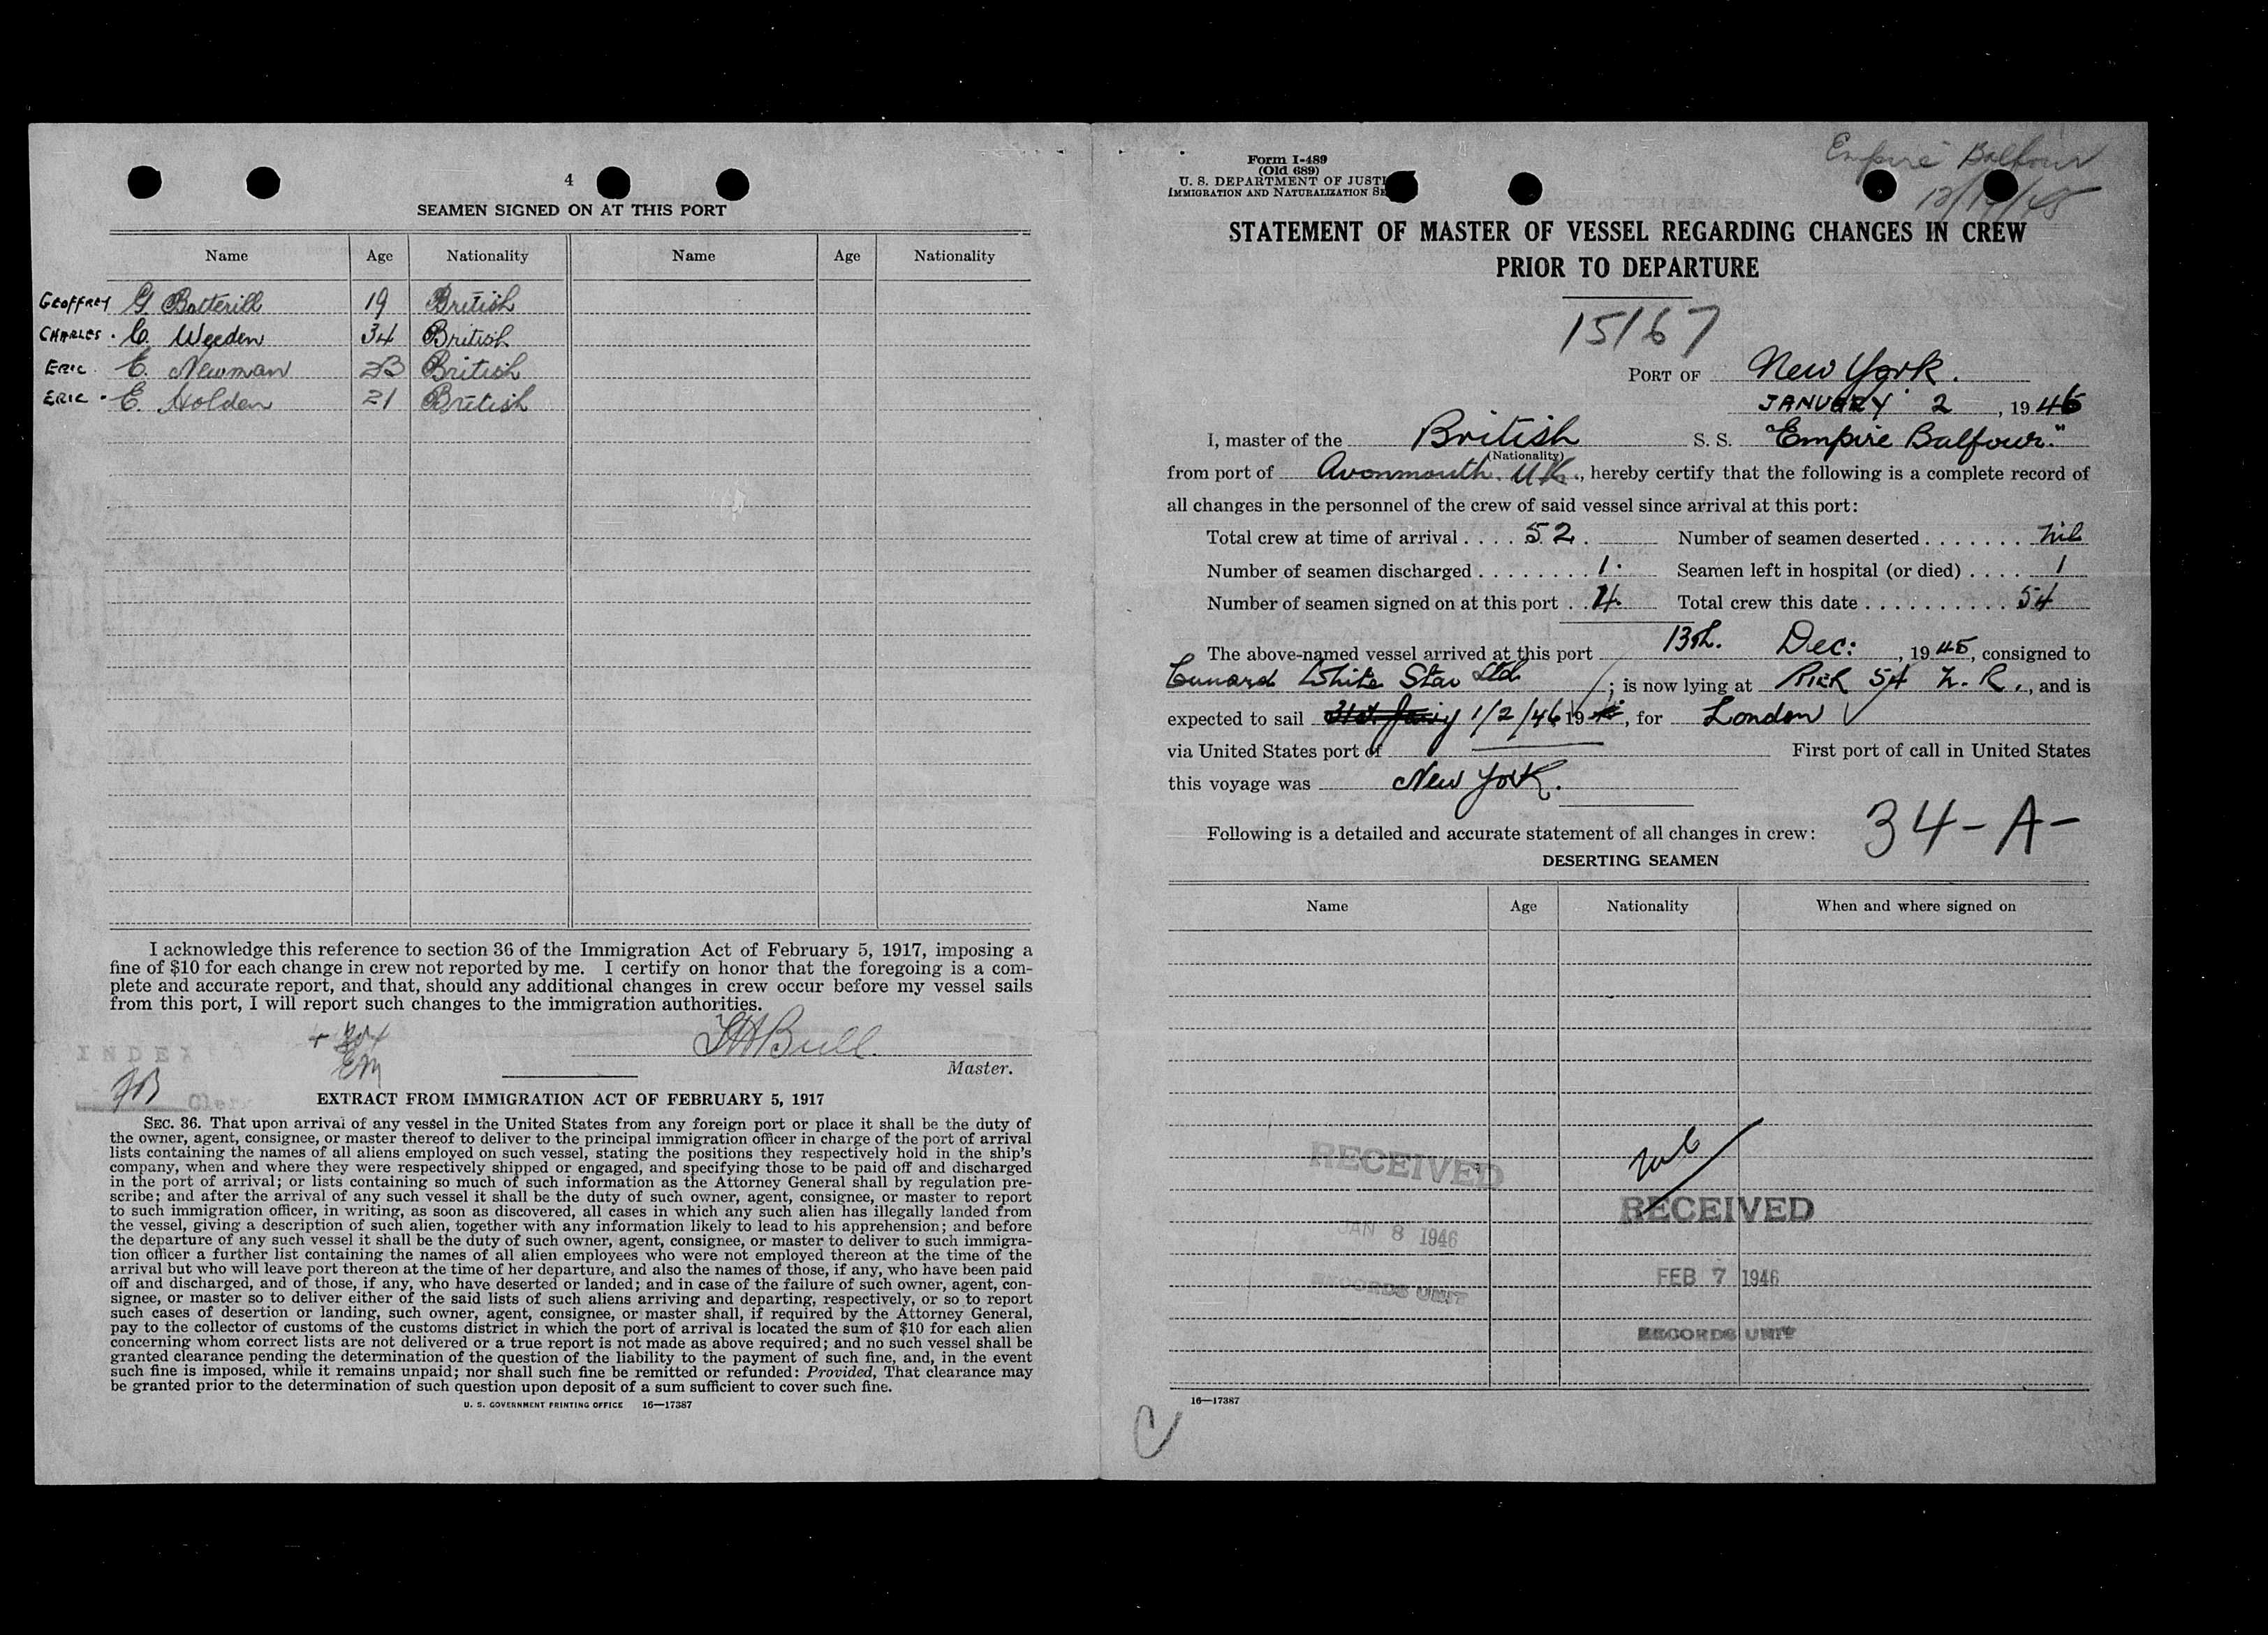 4
SEAMEN SIGNED ON AT THIS PORT
Name Age Nationality Name Age Nationality
GEOFFREY G. Botterill 19 British
CHARLES. C. Weeden 34 British
ERIC. E. Newman 23 British
ERIC. E. Holden 21 British
I acknowledge this reference to section 36 of the Immigration Act of February 5, 1917, imposing a
fine of $10 for each change in crew not reported by me. I certify on honor that the foregoing is a com-
plete and accurate report, and that, should any additional changes in crew occur before my vessel sails
from this port, I will report such changes to the immigration authorities.
Bull
Master.
INDEX
EM
EXTRACT FROM IMMIGRATION ACT OF FEBRUARY 5, 1917
SEC. 36. That upon arrival of any vessel in the United States from any foreign port or place it shall be the duty of
the owner, agent, consignee, or master thereof to deliver to the principal immigration officer in charge of the port of arrival
lists containing the names of all aliens employed on such vessel, stating the positions they respectively hold in the ship's
company, when and where they were respectively shipped or engaged, and specifying those to be paid off and discharged
in the port of arrival; or lists containing so much of such information as the Attorney General shall by regulation pre-
scribe; and after the arrival of any such vessel it shall be the duty of such owner, agent, consignee, or master to report
to such immigration officer, in writing, as soon as discovered, all cases in which any such alien has illegally landed from
the vessel, giving a description of such alien, together with any information likely to lead to his apprehension; and before
the departure of any such vessel it shall be the duty of such owner, agent, consignee, or master to deliver to such immigra-
tion officer a further list containing the names of all alien employees who were not employed thereon at the time of the
arrival but who will leave port thereon at the time of her departure, and also the names of those, if any, who have been paid
off and discharged, and of those, if any, who have deserted or landed; and in case of the failure of such owner, agent, con-
signee, or master so to deliver either of the said lists of such aliens arriving and departing, respectively, or so to report
such cases of desertion or landing, such owner, agent, consignee, or master shall, if required by the Attorney General,
pay to the collector of customs of the customs district in which the port of arrival is located the sum of $10 for each alien
concerning whom correct lists are not delivered or a true report is not made as above required; and no such vessel shall be
granted clearance pending the determination of the question of the liability to the payment of such fine, and, in the event
such fine is imposed, while it remains unpaid; nor shall such fine be remitted or refunded: Provided, That clearance may
be granted prior to the determination of such question upon deposit of a sum sufficient to cover such fine.
U. S. GOVERNMENT PRINTING OFFICE 16—17387
Empire Balfour
Form I-489
(Old 689)
U. S. DEPARTMENT OF JUSTI
IMMIGRATION AND NATURALIZATION SE
STATEMENT OF MASTER OF VESSEL REGARDING CHANGES IN CREW
PRIOR TO DEPARTURE
15167
PORT OF New York.
JANUARY 2, 1946
I, master of the British S. S. "Empire Balfour."
(Nationality)
from port of Avonmouth. UK., hereby certify that the following is a complete record of
all changes in the personnel of the crew of said vessel since arrival at this port:
Total crew at time of arrival .... 52. Number of seamen deserted ....... Nil
Number of seamen discharged ........ 1. Seamen left in hospital (or died) .... 1
Number of seamen signed on at this port .. 4. Total crew this date .......... 54
The above-named vessel arrived at this port 13th. Dec:, 1945, consigned to
Cunard White Star Ltd; is now lying at PIER 54 N. R., and is
expected to sail 1/2/46 19, for London
via United States port of First port of call in United States
this voyage was New York.
Following is a detailed and accurate statement of all changes in crew: 34-A-
DESERTING SEAMEN
Name Age Nationality When and where signed on
nil
RECEIVED
JAN 8 1946
RECORDS UNIT
RECEIVED
FEB 7 1946
RECORDS UNIT
16—17387
C